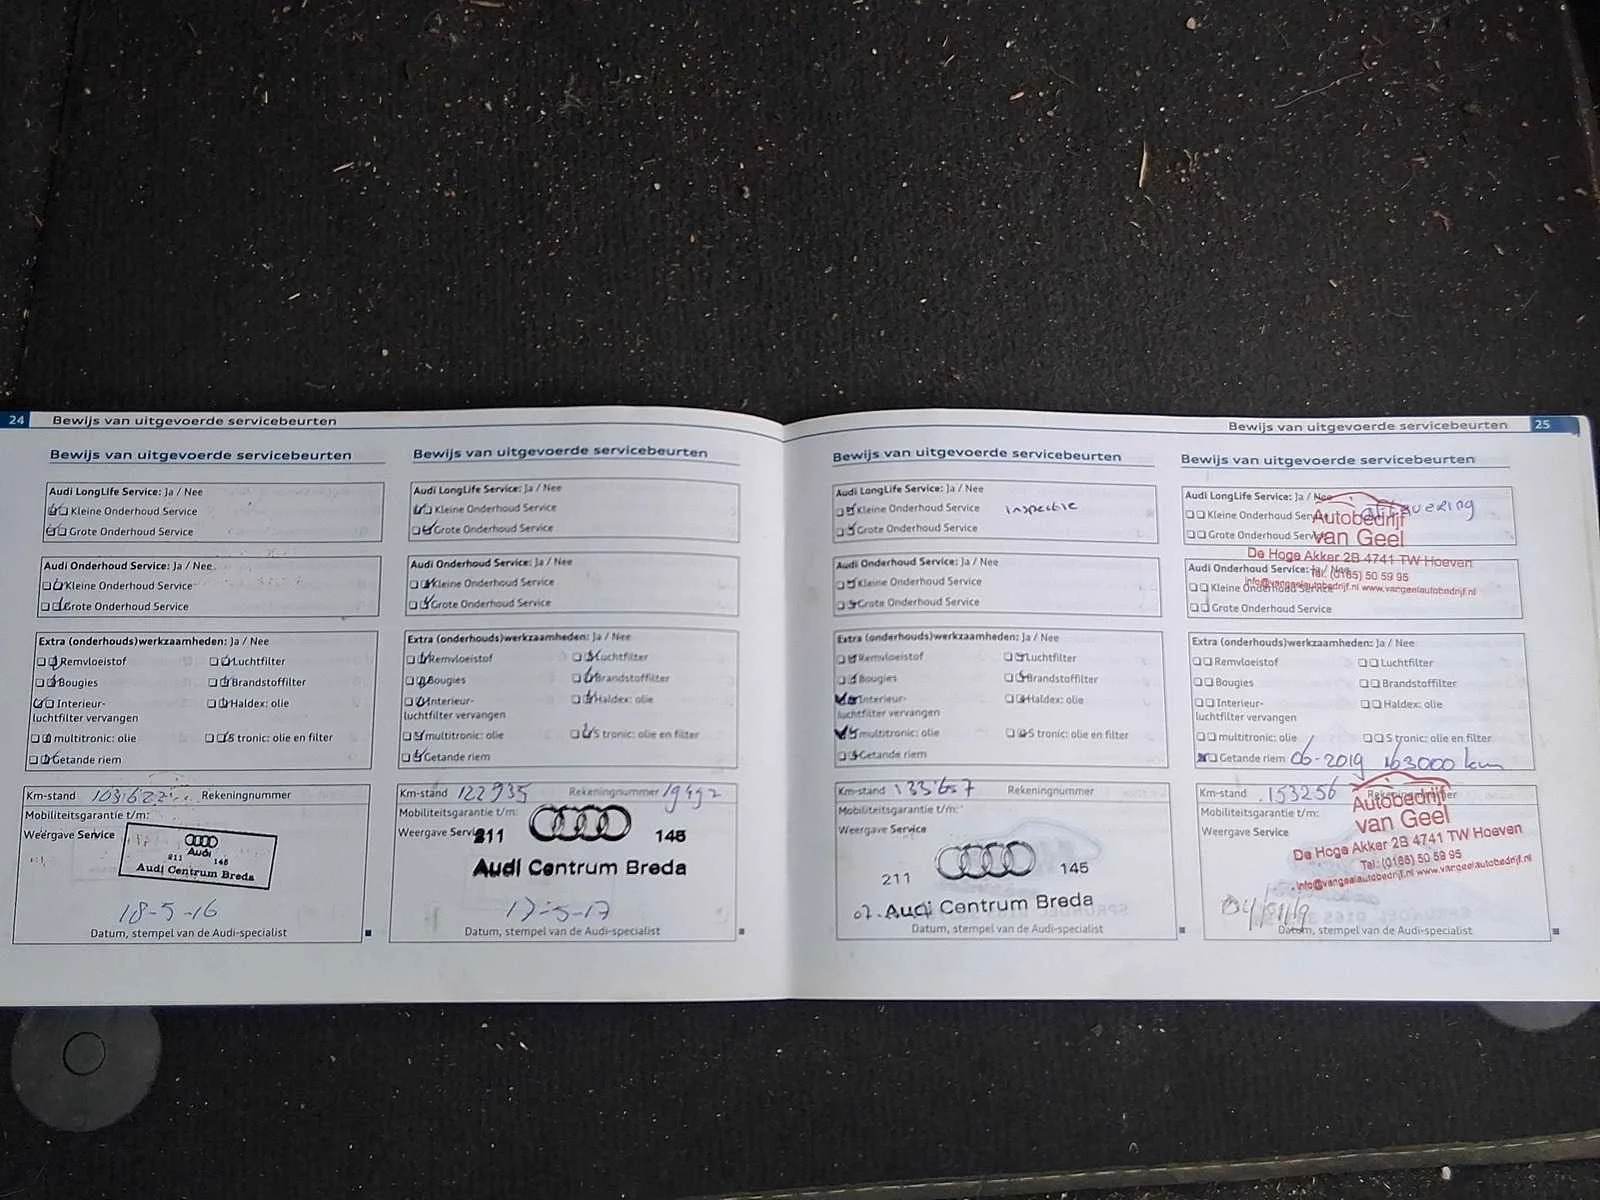 24 Bewijs van uitgevoerde servicebeurten
Bewijs van uitgevoerde servicebeurten
Audi LongLife Service: Ja / Nee
Kleine Onderhoud Service
Grote Onderhoud Service
Audi Onderhoud Service: Ja / Nee
Kleine Onderhoud Service
Grote Onderhoud Service
Extra (onderhouds)werkzaamheden: Ja / Nee
Remvloeistof Luchtfilter
Bougies Brandstoffilter
Interieur- Haldex: olie
luchtfilter vervangen
multitronic: olie S tronic: olie en filter
Getande riem
Km-stand 103.622 Rekeningnummer
Mobiliteitsgarantie t/m:
Weergave Service
Audi
211 145
Audi Centrum Breda
18-5-16
Datum, stempel van de Audi-specialist
Bewijs van uitgevoerde servicebeurten
Audi LongLife Service: Ja / Nee
Kleine Onderhoud Service
Grote Onderhoud Service
Audi Onderhoud Service: Ja / Nee
Kleine Onderhoud Service
Grote Onderhoud Service
Extra (onderhouds)werkzaamheden: Ja / Nee
Remvloeistof Luchtfilter
Bougies Brandstoffilter
Interieur- Haldex: olie
luchtfilter vervangen
multitronic: olie S tronic: olie en filter
Getande riem
Km-stand 122935 Rekeningnummer 19492
Mobiliteitsgarantie t/m:
Weergave Service
211 145
Audi Centrum Breda
17-5-17
Datum, stempel van de Audi-specialist
Bewijs van uitgevoerde servicebeurten 25
Bewijs van uitgevoerde servicebeurten
Audi LongLife Service: Ja / Nee
Kleine Onderhoud Service inspectie
Grote Onderhoud Service
Audi Onderhoud Service: Ja / Nee
Kleine Onderhoud Service
Grote Onderhoud Service
Extra (onderhouds)werkzaamheden: Ja / Nee
Remvloeistof Luchtfilter
Bougies Brandstoffilter
Interieur- Haldex: olie
luchtfilter vervangen
multitronic: olie S tronic: olie en filter
Getande riem
Km-stand 133.657 Rekeningnummer
Mobiliteitsgarantie t/m:
Weergave Service
211 145
Audi Centrum Breda
Datum, stempel van de Audi-specialist
Bewijs van uitgevoerde servicebeurten
Audi LongLife Service: Ja / Nee
Kleine Onderhoud Service
Grote Onderhoud Service
Autobedrijf
van Geel
De Hoge Akker 2B 4741 TW Hoeven
Tel: (0165) 50 59 95
info@vangeelautobedrijf.nl www.vangeelautobedrijf.nl
Audi Onderhoud Service: Ja / Nee
Kleine Onderhoud Service
Grote Onderhoud Service
Extra (onderhouds)werkzaamheden: Ja / Nee
Remvloeistof Luchtfilter
Bougies Brandstoffilter
Interieur- Haldex: olie
luchtfilter vervangen
multitronic: olie S tronic: olie en filter
Getande riem 06-2019 163000 km
Km-stand 153256 Rekeningnummer
Mobiliteitsgarantie t/m:
Weergave Service
Autobedrijf
van Geel
De Hoge Akker 2B 4741 TW Hoeven
Tel: (0165) 50 59 95
info@vangeelautobedrijf.nl www.vangeelautobedrijf.nl
Datum, stempel van de Audi-specialist